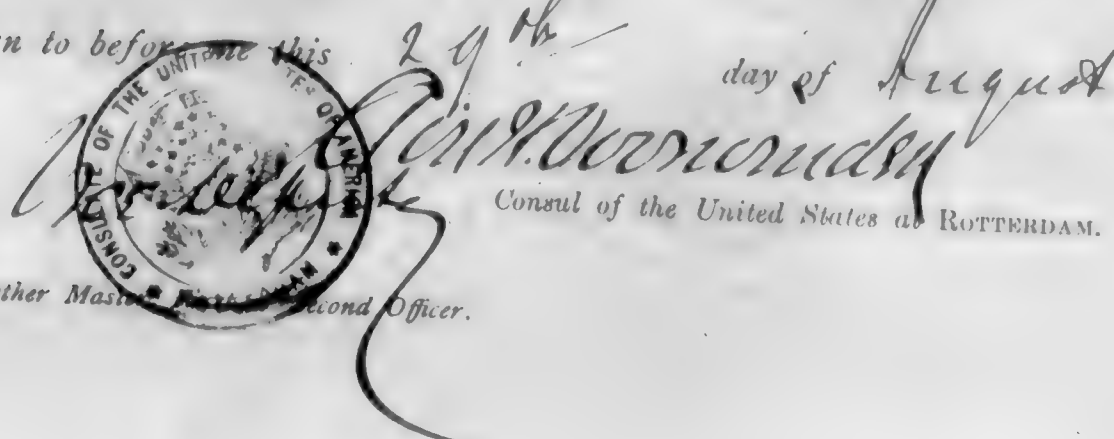 n to before me this 29th day of August
Consul of the United States at ROTTERDAM.
CONSULATE OF THE UNITED STATES OF AMERICA
ther Master, First or Second Officer.